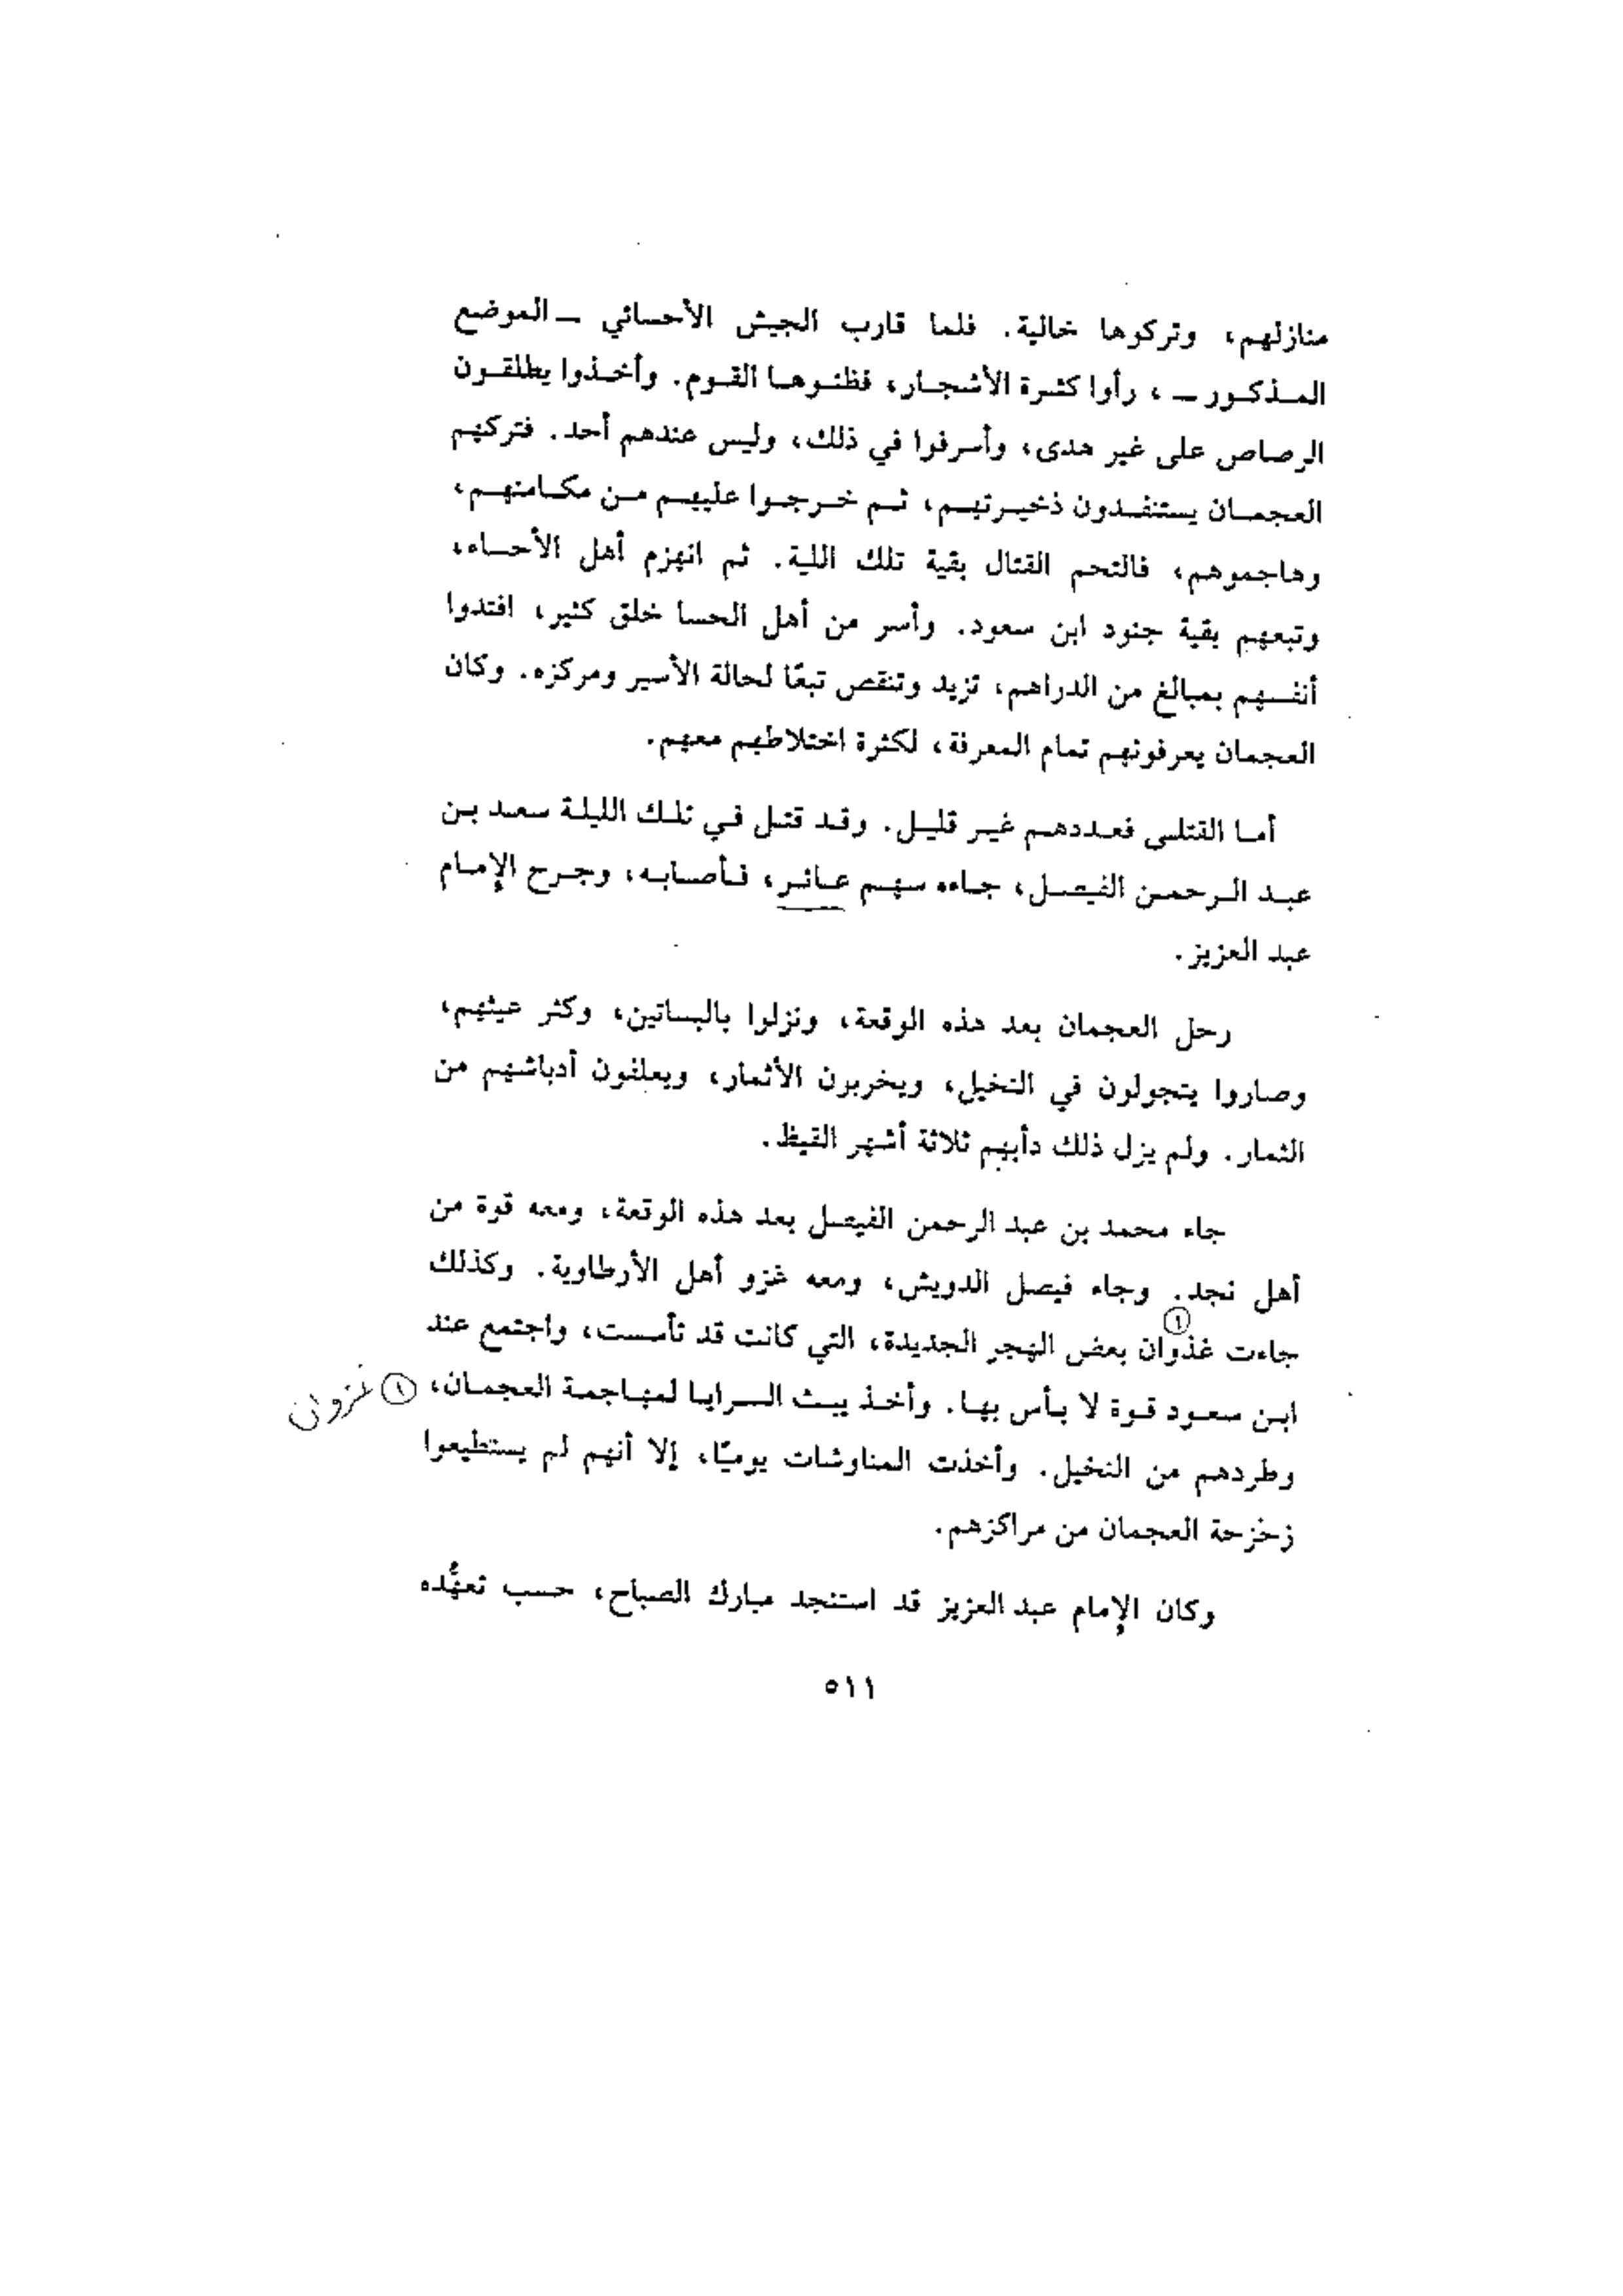 منازلهم، وتركوها خالية. فلما قارب الجيش الأحسائي ــ الموضع
المـذكـور ــ ، رأوا كثـرة الأشجـار، فظنـوهـا القـوم. وأخـذوا يطلقـون
الرصاص على غير هدى، وأسرفوا في ذلك، وليس عندهم أحد. فتركهم
العجمـان يستنفـدون ذخيـرتهـم، ثـم خـرجـوا عليهـم مـن مكـامنهـم،
وهاجموهم، فالتحم القتال بقية تلك اللية. ثم انهزم أهل الأحساء،
وتبعهم بقية جنود ابن سعود. وأسر من أهل الحسا خلق كثير، افتدوا
أنفسهم بمبالغ من الدراهم، تزيد وتنقص تبعًا لحالة الأسير ومركزه. وكان
العجمان يعرفونهم تمام المعرفة، لكثرة اختلاطهم معهم.
أمـا القتلـى فعـددهـم غيـر قليـل. وقـد قتـل فـي تلـك الليلـة سعـد بـن
عبـد الـرحمـن الفيصـل، جـاءه سهـم عـائـر، فـأصـابـه، وجـرح الإمـام
عبد العزيز.
رحل العجمان بعد هذه الوقعة، ونزلوا بالبساتين، وكثر عيثهم،
وصاروا يتجولون في النخيل، ويخربون الأثمار، ويعلفون أدباشهم من
الثمار. ولم يزل ذلك دأبهم ثلاثة أشهر القيظ.
جاء محمد بن عبد الرحمن الفيصل بعد هذه الوقعة، ومعه قوة من
أهل نجد. وجاء فيصل الدويش، ومعه غزو أهل الأرطاوية. وكذلك
جاءت غذوان ① بعض الهجر الجديدة، التي كانت قد تأسست، واجتمع عند
ابـن سعـود قـوة لا بـأس بهـا. وأخـذ يبـث السـرايـا لمهـاجمـة العجمـان، ① غزوان
وطردهم من النخيل. وأخذت المناوشات يوميًا، إلا أنهم لم يستطيعوا
زخزحة العجمان من مراكزهم.
وكان الإمام عبد العزيز قد استنجد مبارك الصباح، حسب تعهُّده
٥١١